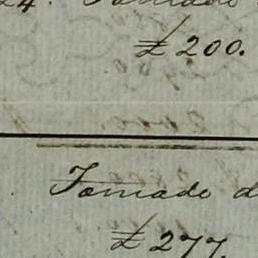 24. Tomado
£ 200.
Tomado d
£ 277.